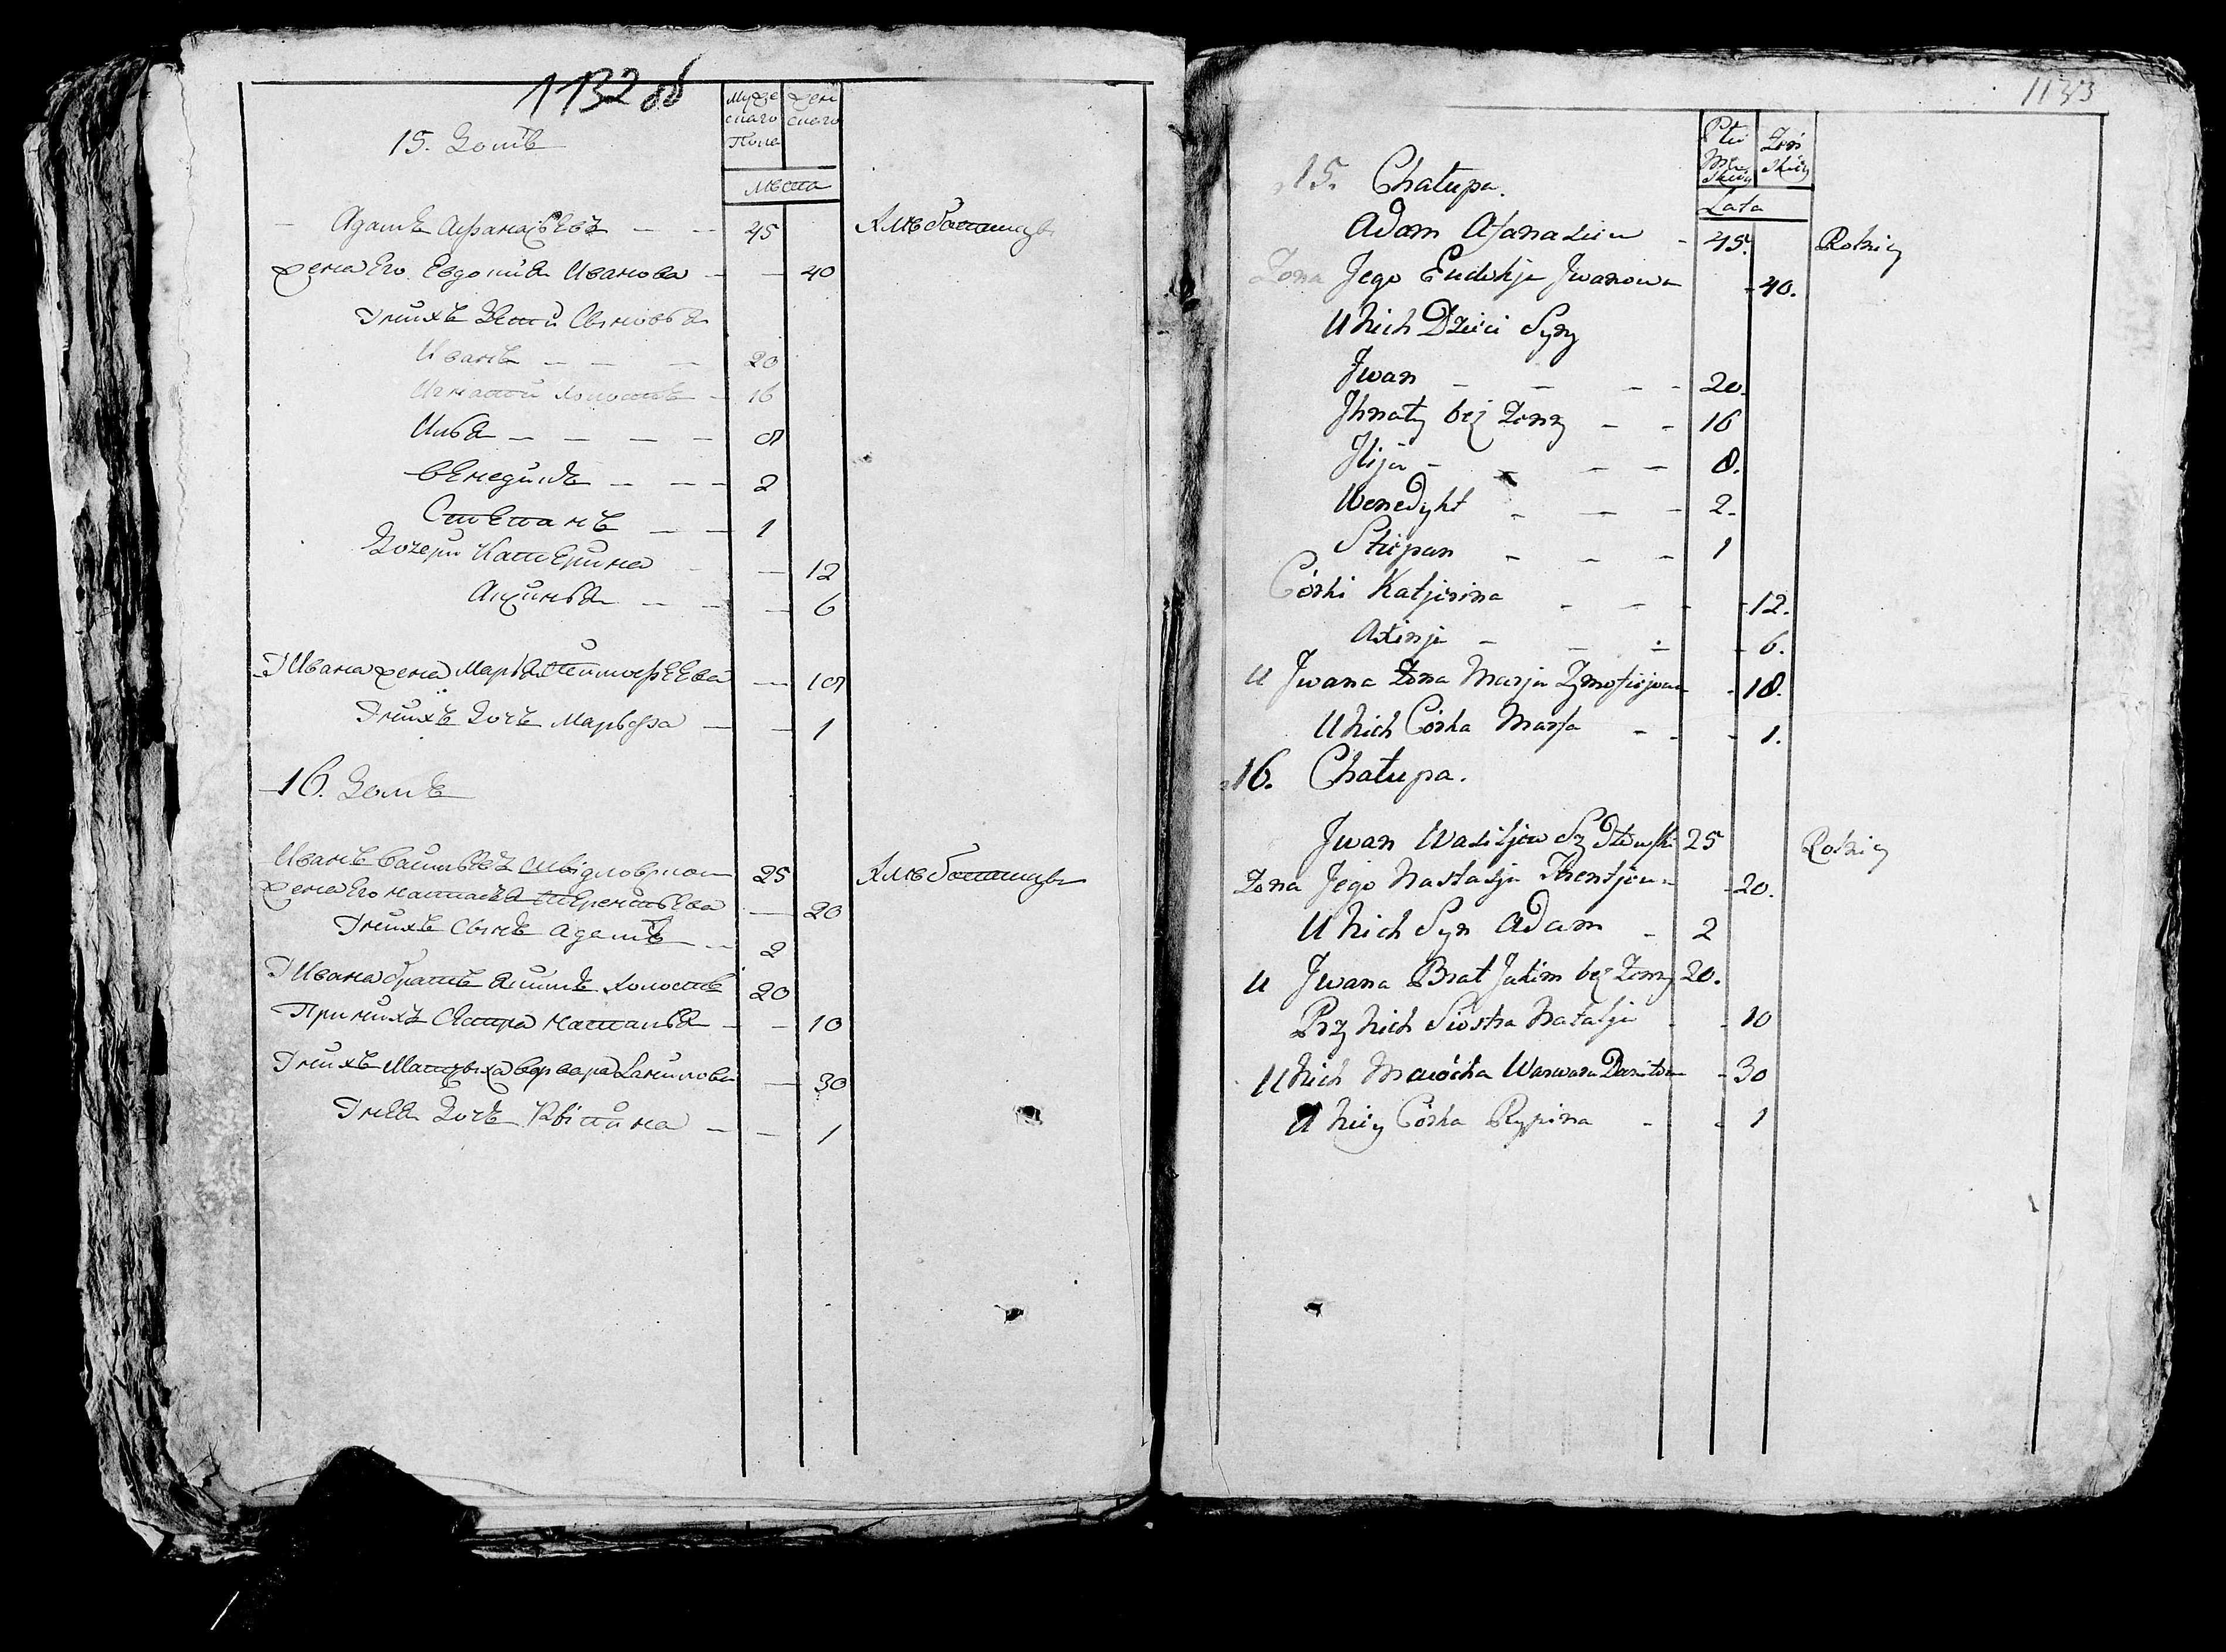 1132 об
Мужескаго Женскаго
Пола
15. Домъ
Лета
Адамъ Афанасьевъ — — 45 Хлебопашцы
Жена Его Евдокия Иванова — — 40
У нихъ Дети Сыновья
Иванъ — — — 20
Игнатий холостъ — 16
Илья — — — — 8
Венедиктъ — — — 2
Степанъ — — 1
Дочери Катерина — 12
Аксинья — — — 6
У Ивана жена Марья Тимофеева — 18
У нихъ Дочь Марьфа — — 1
16. Домъ
Иванъ Васильевъ 25 Хлебопашцы
Жена Его Настасья Терентьева — 20
У нихъ Сынъ Адамъ — — 2
У Ивана братъ Якимъ холостъ 20
При нихъ Сестра Наталья — — 10
У нихъ Мачуха Варвара Данилова — 30
У нея Дочь — — 1
1133
Płci Męskiey Żeńskiey
Lata
15. Chałupa.
Adam Afanasiew - 45. Rolnicy
Żona Jego Eudokja Jwanowa - 40.
U Nich Dzieci Syny
Jwan — — — - 20.
Jhnaty bez Żony — - 16
Jlija - — — — 8.
Wenedykt - — - 2.
Stiepan - - - 1
Córki Katjerina - - - 12.
Axinja — - - - 6.
U Jwana Żona Marja Tymofiejewa - 18.
U Nich Córka Marfa - - - 1.
16. Chałupa.
Jwan Wasiljew 25 Rolnicy
Żona Jego Nastasja Therentjewa - 20.
U Nich Syn Adam - 2
U Jwana Brat Jakim bez Żony 20.
Przy Nich Siostra Natalja - - 10
U Nich Macocha Warwara Daniłowa - 30
U Niey Córka Rypina - - 1